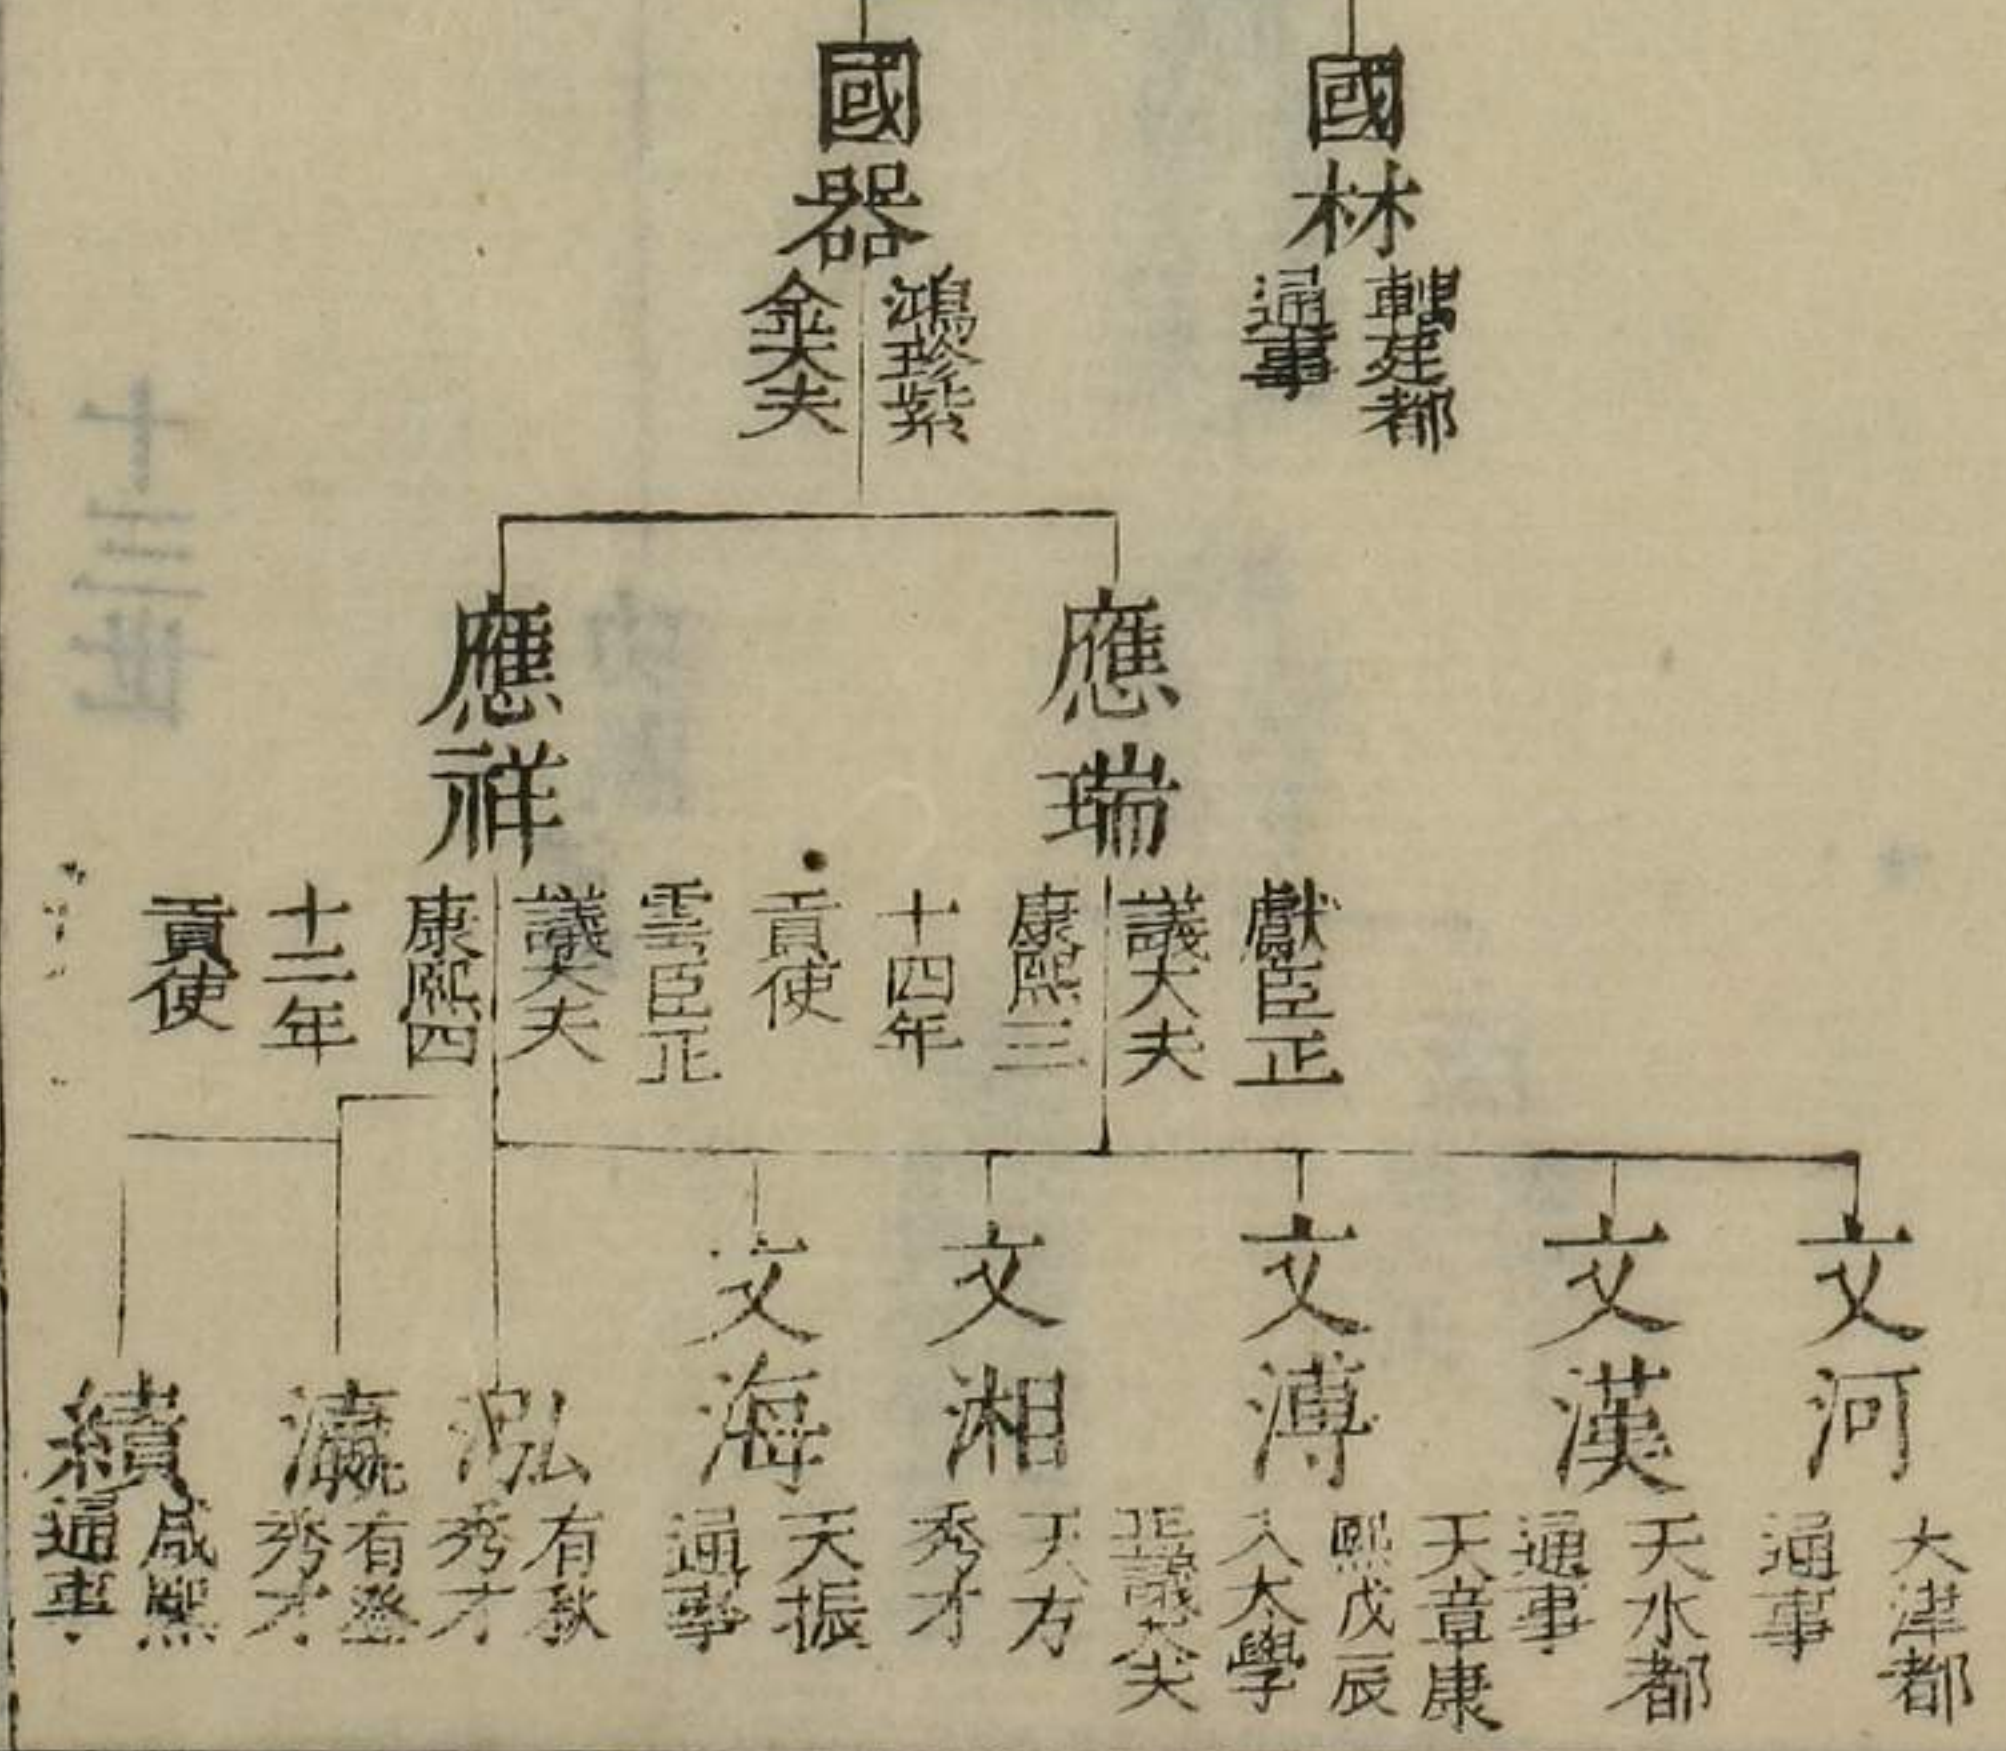 國林
建都
通事
國器
鴻珍紫
金大夫
應瑞
獻臣正
議大夫
康熙三
十四年
貢使
應祥
雲臣正
議大夫
康熙四
十二年
貢使
文河
天津都
通事
文漢
天水都
通事
文溥
天章康
熙戊辰
入大學
正議大夫
文湘
天方
秀才
文海
天振
通事
泓
有秋
秀才
瀛
有登
秀才
續
咸熙
通事
十三世